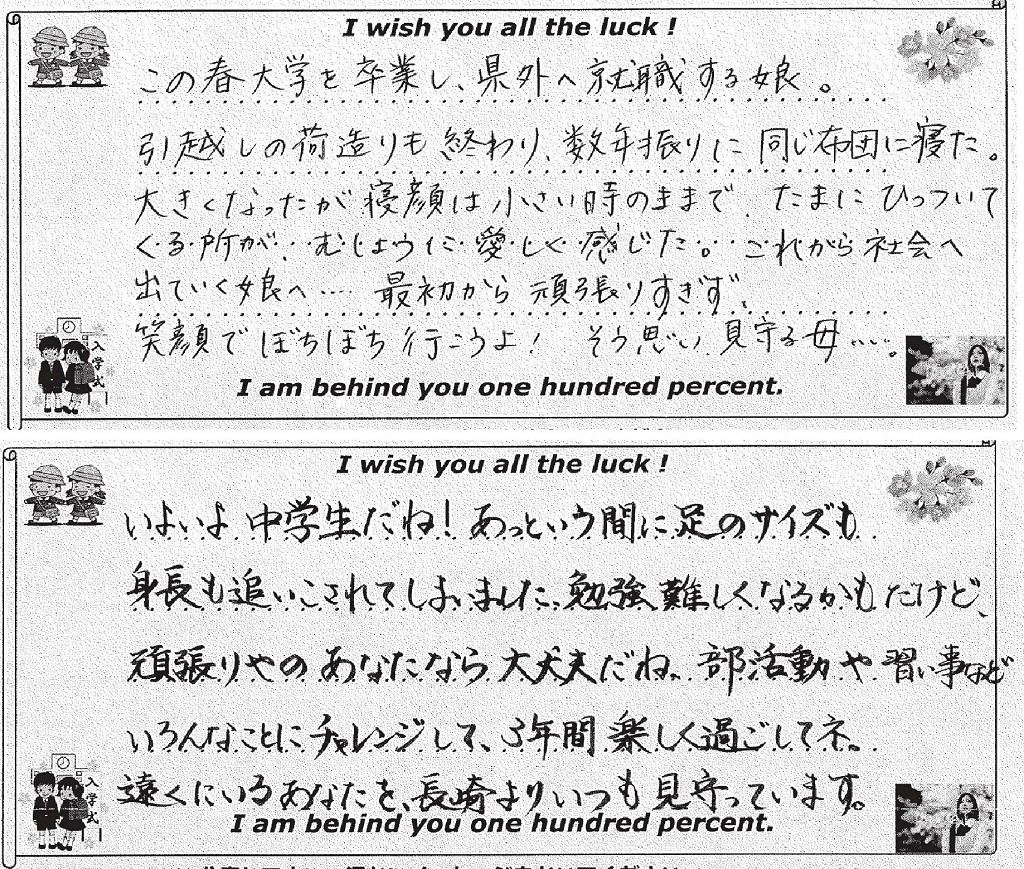 I wish you all the luck !
この春大学を卒業し、県外へ就職する娘。
引越しの荷造りも終わり、数年振りに同じ布団に寝た。
大きくなったが寝顔は小さい時のままで、たまにひっついて
くる所が、むしょうに愛しく感じた。これから社会へ
出ていく娘へ…… 最初から頑張りすぎず、
笑顔でぼちぼち行こうよ! そう思い見守る母……。
入学式
I am behind you one hundred percent.
I wish you all the luck !
いよいよ中学生だね!あっという間に足のサイズも
身長も追いこされてしまいました。勉強難しくなるかもだけど、
頑張りやのあなたなら大丈夫だね。部活動や習い事など
いろんなことにチャレンジして、3年間楽しく過ごしてネ。
遠くにいるあなたを、長崎よりいつも見守っています。
入学式
I am behind you one hundred percent.